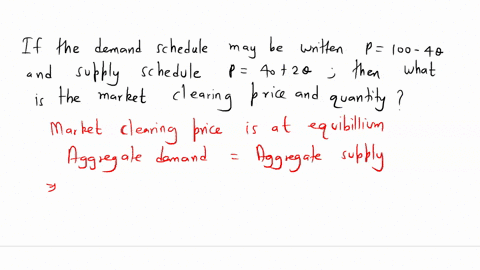 If the demand schedule may be written P = 100 - 4Q
and supply schedule P = 40 + 2Q ; then what
is the market clearing price and quantity ?
Market clearing price is at equibillium
Aggregate demand = Aggregate supply
⇒